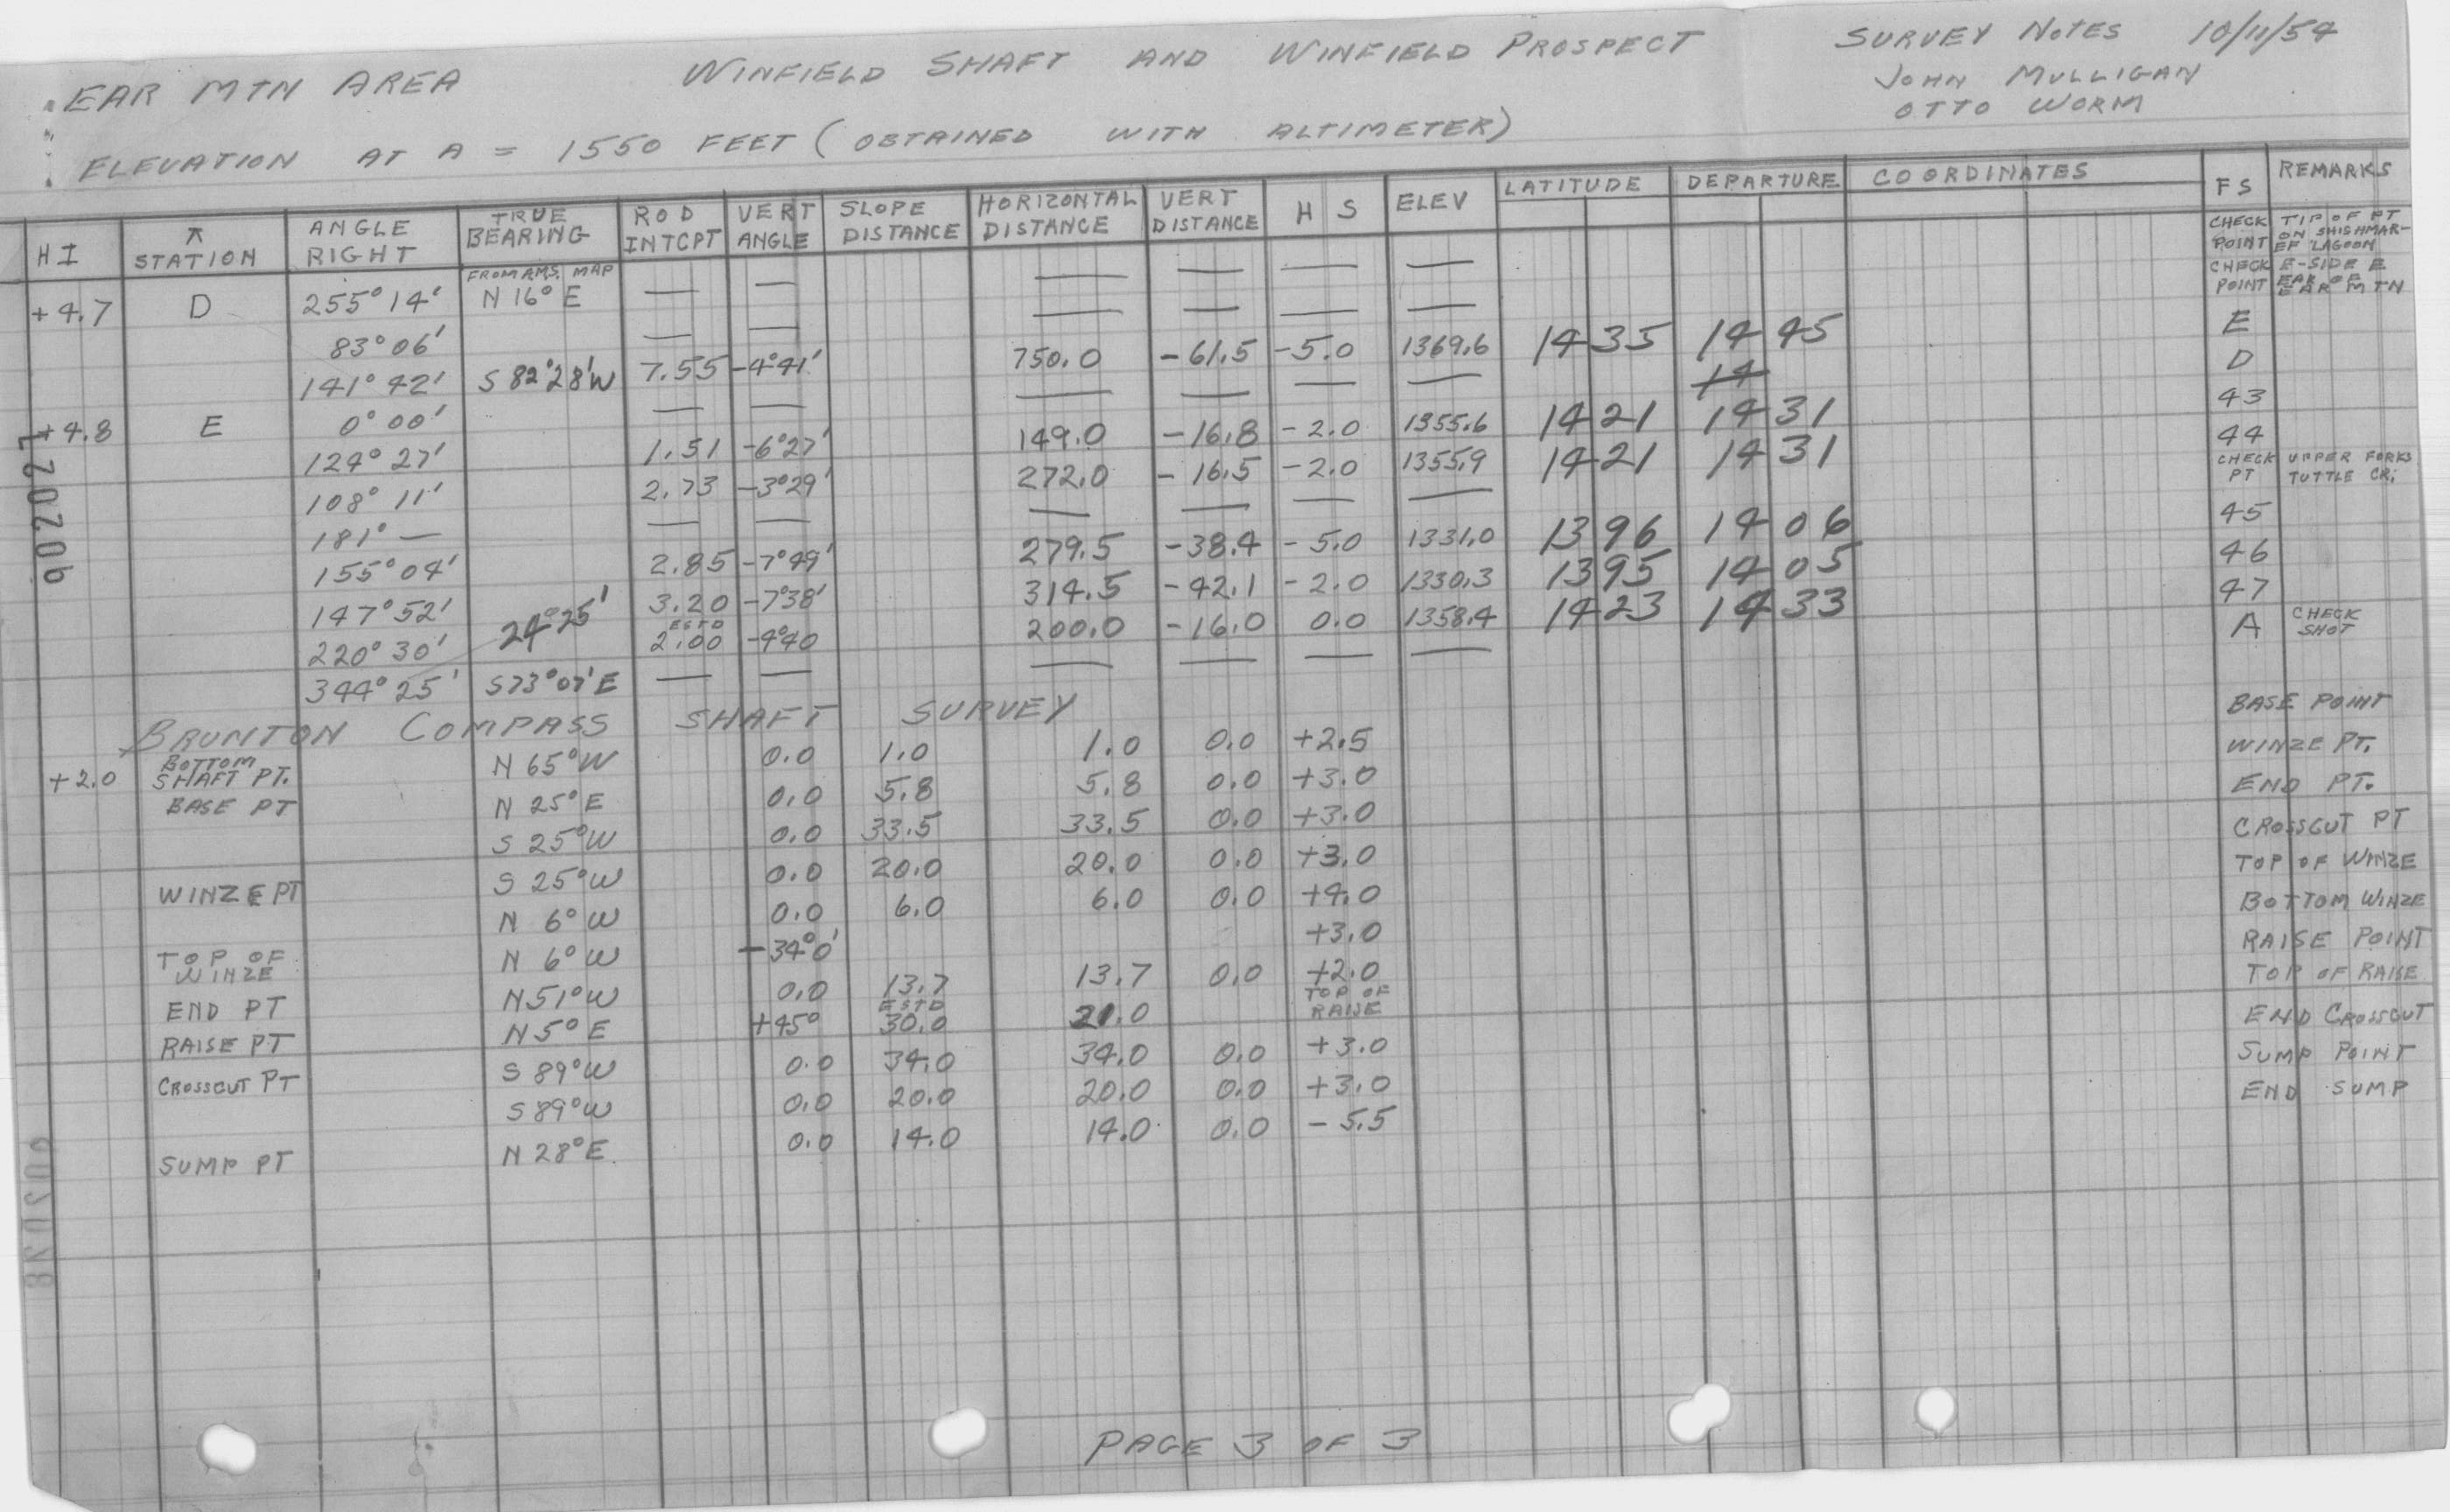 EAR MTN AREA WINFIELD SHAFT AND WINFIELD PROSPECT SURVEY NOTES 10/11/54
JOHN MULLIGAN
OTTO WORM
ELEVATION AT A = 1550 FEET (OBTAINED WITH ALTIMETER)
HI ⊼ STATION ANGLE RIGHT TRUE BEARING ROD INTCPT VERT ANGLE SLOPE DISTANCE HORIZONTAL DISTANCE VERT DISTANCE H S ELEV LATITUDE DEPARTURE COORDINATES FS REMARKS
+4.7 D 255°14' FROM AMS. MAP N 16° E — — — — — — CHECK POINT TIP OF PT ON SHISHMAREF LAGOON
83°06' — — — — — — CHECK POINT E-SIDE E EAR OF EAR MTN
141°42' S 82°28'W 7.55 -4°41' 750.0 -61.5 -5.0 1369.6 1435 1445 E
+4.8 E 0°00' — — — — — — 14 D
124°27' 1.51 -6°27' 149.0 -16.8 -2.0 1355.6 1421 1431 43
108°11' 2.73 -3°29' 272.0 -16.5 -2.0 1355.9 1421 1431 44
181° — — — — — — — CHECK PT UPPER FORKS TUTTLE CR.
155°04' 2.85 -7°49' 279.5 -38.4 -5.0 1331.0 1396 1406 45
147°52' 3.20 -7°38' 314.5 -42.1 -2.0 1330.3 1395 1405 46
220°30' 24°25' ESTD 2.00 -4°40 200.0 -16.0 0.0 1358.4 1423 1433 47
344°25' S73°07'E — — — — — — A CHECK SHOT
BRUNTON COMPASS SHAFT SURVEY
+2.0 BOTTOM SHAFT PT. N 65°W 0.0 1.0 1.0 0.0 +2.5 BASE POINT
BASE PT N 25°E 0.0 5.8 5.8 0.0 +3.0 WINZE PT.
S 25°W 0.0 33.5 33.5 0.0 +3.0 END PT.
S 25°W 0.0 20.0 20.0 0.0 +3.0 CROSSCUT PT
WINZE PT N 6°W 0.0 6.0 6.0 0.0 +4.0 TOP OF WINZE
TOP OF WINZE N 6°W -34°0' +3.0 BOTTOM WINZE
END PT N51°W 0.0 13.7 13.7 0.0 +2.0 RAISE POINT
RAISE PT N5°E +45° ESTD 30.0 21.0 TOP OF RAISE TOP OF RAISE
CROSSCUT PT S 89°W 0.0 34.0 34.0 0.0 +3.0 END CROSSCUT
S 89°W 0.0 20.0 20.0 0.0 +3.0 SUMP POINT
SUMP PT N 28°E. 0.0 14.0 14.0 0.0 -5.5 END SUMP
PAGE 3 OF 3